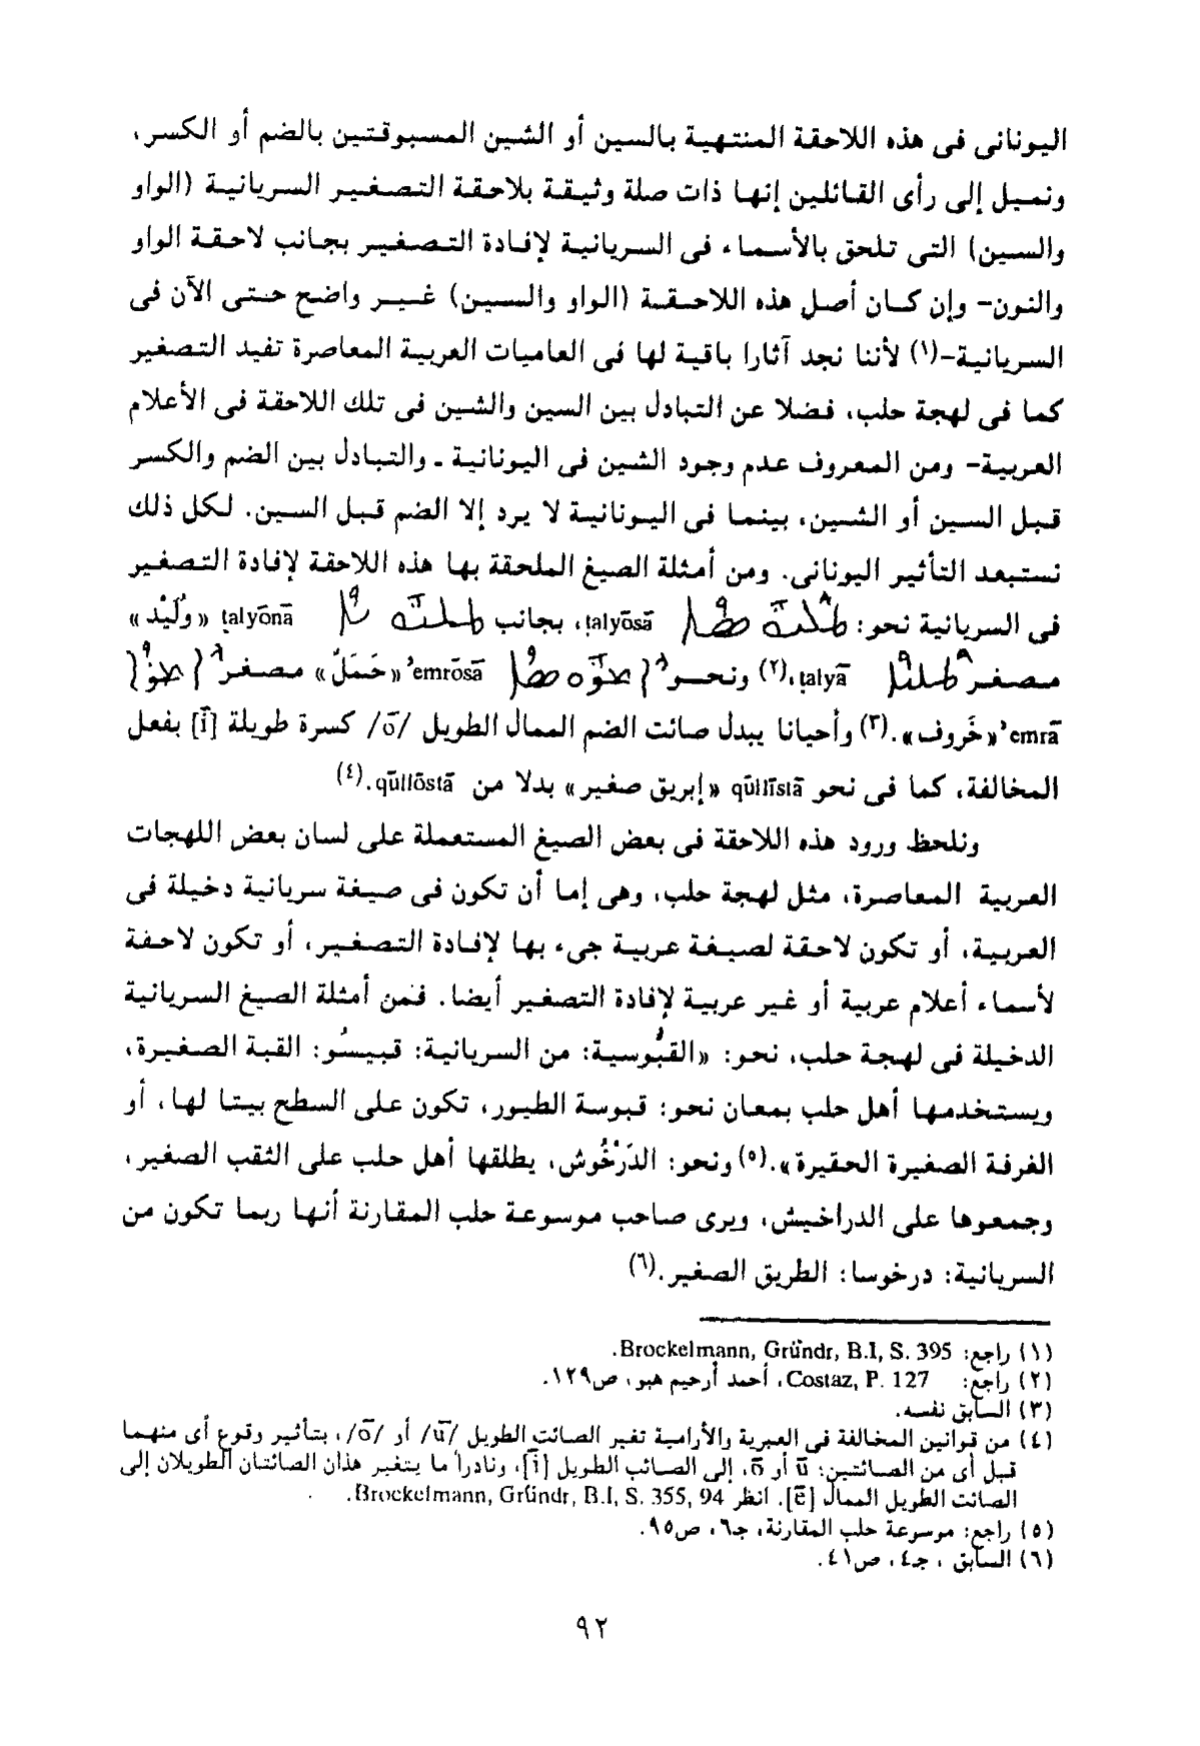 اليونانى فى هذه اللاحقة المنتهية بالسين أو الشين المسبوقتين بالضم أو الكسر،
ونميل إلى رأى القائلين إنها ذات صلة وثيقة بلاحقة التصغير السريانية (الواو
والسين) التى تلحق بالأسماء فى السريانية لإفادة التصغير بجانب لاحقة الواو
والنون- وإن كان أصل هذه اللاحقة (الواو والسين) غير واضح حتى الآن فى
السريانية-(١) لأننا نجد آثارا باقية لها فى العاميات العربية المعاصرة تفيد التصغير
كما فى لهجة حلب، فضلا عن التبادل بين السين والشين فى تلك اللاحقة فى الأعلام
العربية- ومن المعروف عدم وجود الشين فى اليونانية ـ والتبادل بين الضم والكسر
قبل السين أو الشين، بينما فى اليونانية لا يرد إلا الضم قبل السين. لكل ذلك
نستبعد التأثير اليونانى. ومن أمثلة الصيغ الملحقة بها هذه اللاحقة لإفادة التصغير
فى السريانية نحو: ṭalyōsā، بجانب ṭalyōnā «وُلَيْد»
مصغر ṭalyā،(٢) ونحو ’emrōsā «حَمَلٌ» مصغر
’emrā «خَروف».(٣) وأحيانا يبدل صائت الضم الممال الطويل /ō/ كسرة طويلة [ī] بفعل
المخالفة، كما فى نحو qūllīstā «إبريق صغير» بدلا من qūllōstā.(٤)
ونلحظ ورود هذه اللاحقة فى بعض الصيغ المستعملة على لسان بعض اللهجات
العربية المعاصرة، مثل لهجة حلب، وهى إما أن تكون فى صيغة سريانية دخيلة فى
العربية، أو تكون لاحقة لصيغة عربية جىء بها لإفادة التصغير، أو تكون لاحقة
لأسماء أعلام عربية أو غير عربية لإفادة التصغير أيضا. فمن أمثلة الصيغ السريانية
الدخيلة فى لهجة حلب، نحو: «القبُّوسية: من السريانية: قبيسُو: القبة الصغيرة،
ويستخدمها أهل حلب بمعان نحو: قبوسة الطيور، تكون على السطح بيتا لها، أو
الغرفة الصغيرة الحقيرة».(٥) ونحو: الدَرْخُوش، يطلقها أهل حلب على الثقب الصغير،
وجمعوها على الدراخيش، ويرى صاحب موسوعة حلب المقارنة أنها ربما تكون من
السريانية: درخوسا: الطريق الصغير.(٦)
(١) راجع: Brockelmann, Gründr, B.I, S. 395.
(٢) راجع: Costaz, P. 127، أحمد أرحيم هبو، ص١٢٩.
(٣) السابق نفسه.
(٤) من قوانين المخالفة فى العبرية والأرامية تغير الصائت الطويل /ū/ أو /ō/، بتأثير وقوع أى منهما
قبل أى من الصائتين: ū أو ō، إلى الصائب الطويل [ī]، ونادراً ما يتغير هذان الصائتان الطويلان إلى
الصائت الطويل الممال [ē]. انظر Brockelmann, Gründr, B.I, S. 355, 94.
(٥) راجع: موسوعة حلب المقارنة، جـ٦، ص٩٥.
(٦) السابق ، جـ٤، ص٤١.
٩٢